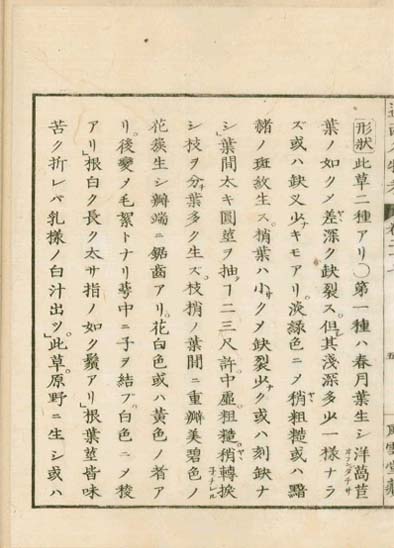 形狀 此草二種アリ○第一種ハ春月葉生シ洋萵苣
葉ノ如クメ差深ク缺裂ス但其淺深多少一樣ナラ
ズ或ハ缺叉少キモアリ淡綠色ニメ稍粗糙或ハ黯
赭ノ斑紋生ス梢葉ハ小クメ缺裂少ク或ハ刻缺ナ
シ葉間太キ圓莖ヲ抽ヿ二三尺許中虛粗糙稍轉捩
シ枝ヲ分ナ葉多ク生ズ枝梢ノ葉間ニ重瓣美碧色ノ
花簇生シ瓣端ニ鋸齒アリ花白色或ハ黃色ノ者ア
リ後變メ毛絮トナリ萼中ニ子ヲ結ブ白色ニメ稜
アリ根白ク長ク太サ指ノ如ク鬚アリ根葉莖皆味
苦ク折レバ乳樣ノ白汁出ヅ此草原野ニ生シ或ハ